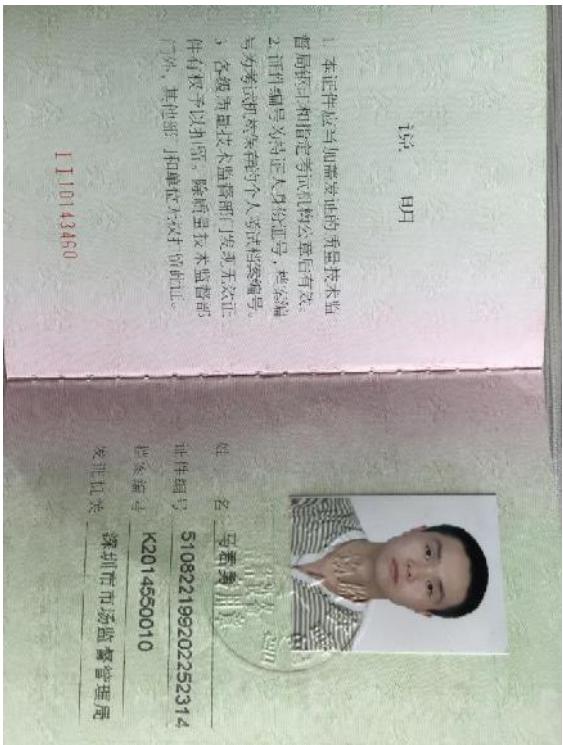 说 明
1. 本证件应当加盖发证的质量技术监
督局钢印和指定考试机构公章后有效。
2. 证件编号为持证人身份证号，档案编
号为考试机构保存的个人考试档案编号。
3. 各级质量技术监督部门发现无效证
件有权予以扣留。除质量技术监督部
门外，其他部门和单位无权扣留此证。
II10143460
姓 名 马看勇
证件编号 510822199202252314
档案编号 K2014550010
发证机关 深圳市市场监督管理局